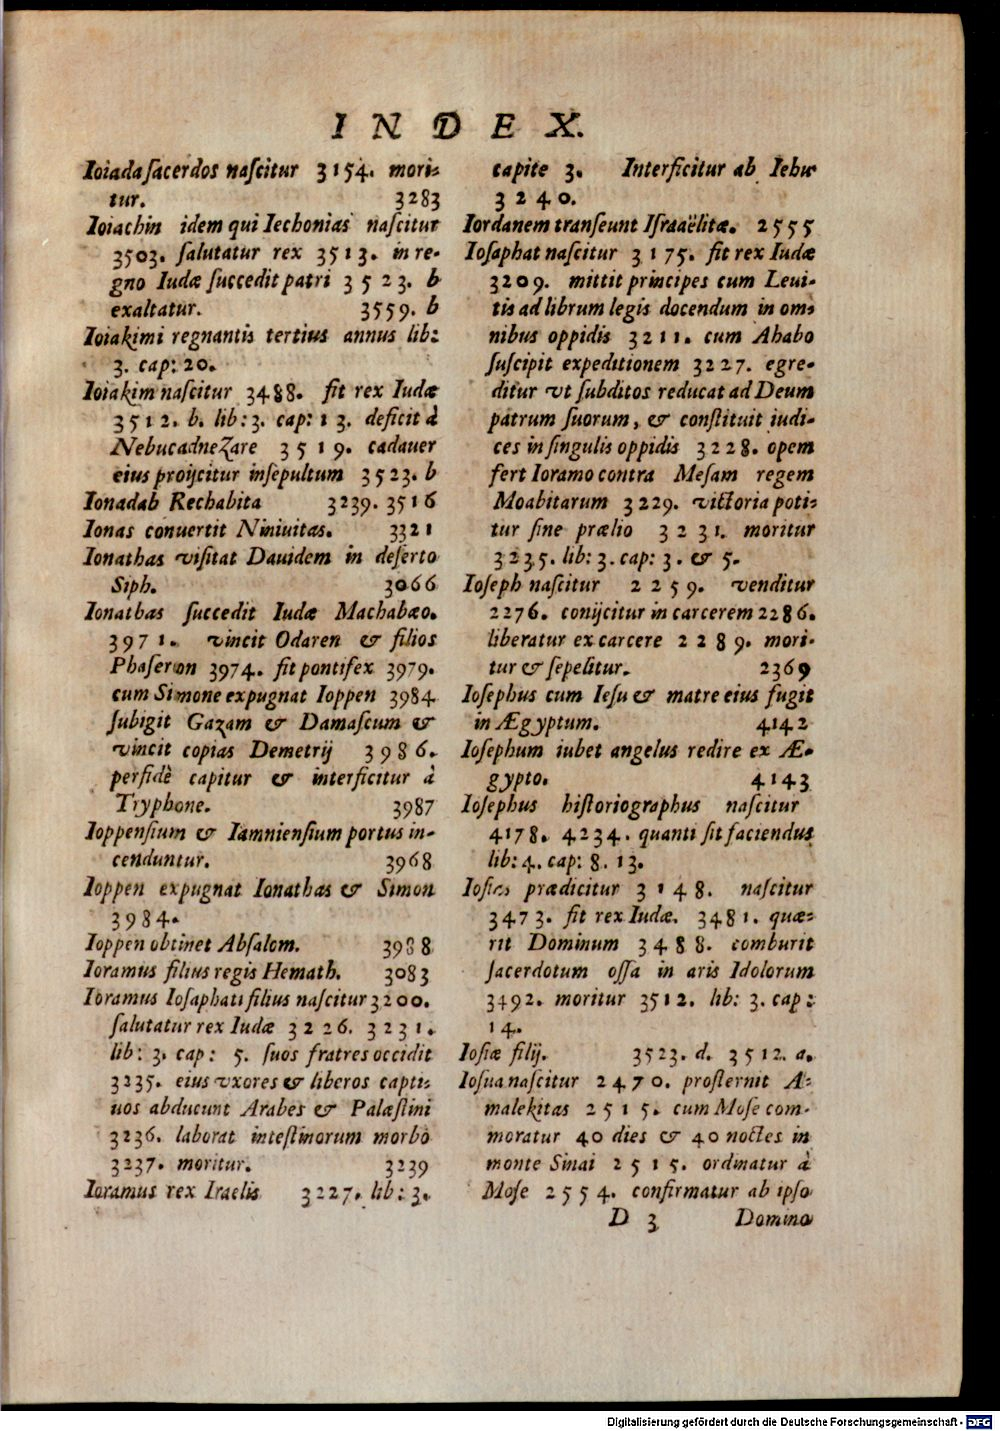 INDEX.
Ioiada ſacerdos naſcitur 3154. mori-
tur. 3283
Ioiachin idem qui Iechonias naſcitur
3503. ſalutatur rex 3513. in re-
gno Iudæ ſuccedit patri 3523. b
exaltatur. 3559. b
Ioiakimi regnantis tertius annus lib:
3. cap: 20.
Ioiakim naſcitur 3488. fit rex Iudæ
3512. b. lib: 3. cap: 13. deficit à
Nebucadnezare 3519. cadauer
eius proijcitur inſepultum 3523. b
Ionadab Rechabita 3239. 3516
Ionas conuertit Niniuitas. 3321
Ionathas viſitat Dauidem in deſerto
Siph. 3066
Ionathas ſuccedit Iudæ Machabæo.
3971. vincit Odaren & filios
Phaſeron 3974. fit pontifex 3979.
cum Simone expugnat Ioppen 3984
ſubigit Gazam & Damaſcum &
vincit copias Demetrij 3986.
perfidè capitur & interficitur à
Tryphone. 3987
Ioppenſium & Iamnienſium portus in-
cenduntur. 3968
Ioppen expugnat Ionathas & Simon
3984.
Ioppen obtinet Abſalom. 3988
Ioramus filius regis Hemath. 3083
Ioramus Ioſaphati filius naſcitur 3200.
ſalutatur rex Iudæ 3226. 3231.
lib: 3. cap: 5. ſuos fratres occidit
3235. eius vxores & liberos capti-
uos abducunt Arabes & Palæſtini
3236. laborat inteſtinorum morbo
3237. moritur. 3239
Ioramus rex Iraelis 3227. lib: 3.
capite 3. Interficitur ab Iehu
3240.
Iordanem tranſeunt Iſraaëlitæ. 2555
Ioſaphat naſcitur 3175. fit rex Iudæ
3209. mittit principes cum Leui-
tis ad librum legis docendum in om-
nibus oppidis 3211. cum Ahabo
ſuſcipit expeditionem 3227. egre-
ditur vt ſubditos reducat ad Deum
patrum ſuorum, & conſtituit iudi-
ces in ſingulis oppidis 3228. opem
fert Ioramo contra Meſam regem
Moabitarum 3229. victoria poti-
tur ſine prælio 3231. moritur
3235. lib: 3. cap: 3. & 5.
Ioſeph naſcitur 2259. venditur
2276. conijcitur in carcerem 2286.
liberatur ex carcere 2289. mori-
tur & ſepelitur. 2369
Ioſephus cum Ieſu & matre eius fugit
in Ægyptum. 4142
Ioſephum iubet angelus redire ex Æ-
gypto. 4143
Ioſephus hiſtoriographus naſcitur
4178. 4234. quanti ſit faciendus
lib: 4. cap: 8. 13.
Ioſias prædicitur 3148. naſcitur
3473. fit rex Iudæ. 3481. quæ-
rit Dominum 3488. comburit
ſacerdotum oſſa in aris Idolorum
3492. moritur 3512. lib: 3. cap:
14.
Ioſiæ filij. 3523. d. 3512. a.
Ioſua naſcitur 2470. proſternit A-
malekitas 2515. cum Moſe com-
moratur 40 dies & 40 noctes in
monte Sinai 2515. ordinatur à
Moſe 2554. confirmatur ab ipſo
D 3 Domino
Digitalisierung gefördert durch die Deutsche Forschungsgemeinschaft - DFG